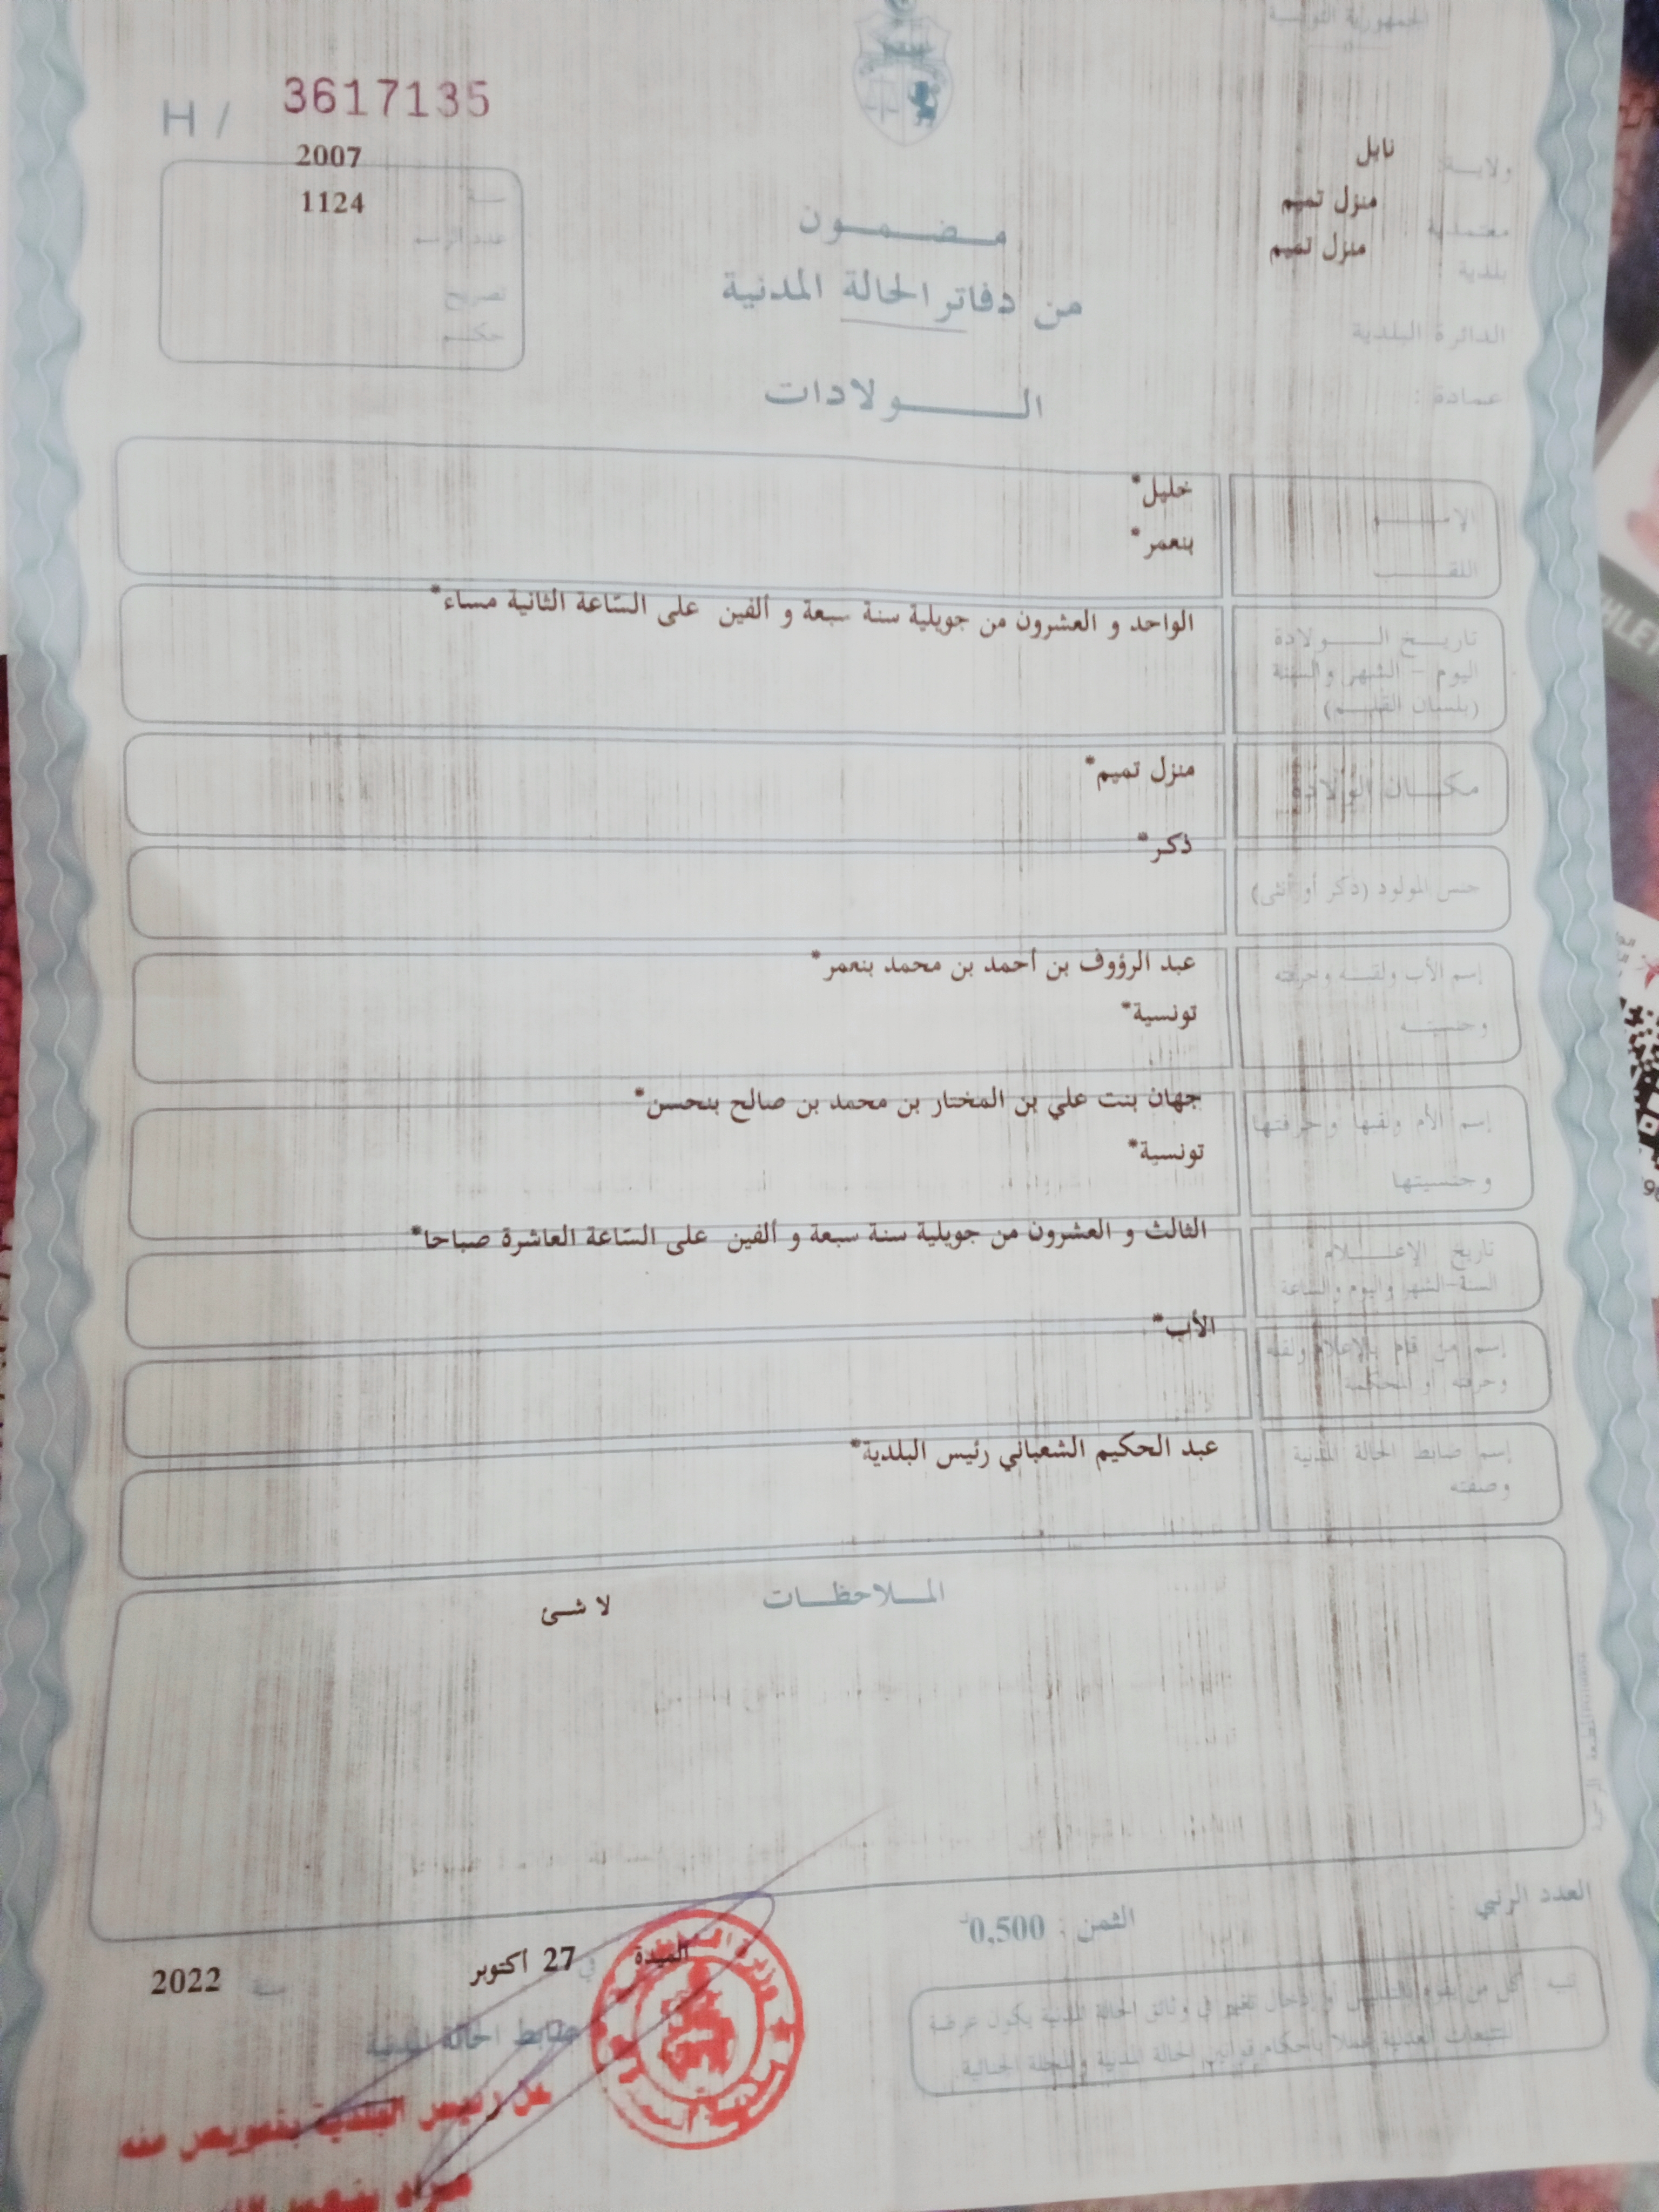 الجمهورية التونسية
H / 3617135
ولاية: نابل
معتمدية منزل تميم
بلدية منزل تميم
الدائرة البلدية
عمادة :
سنة 2007
عدد الرسم 1124
تصريح
حكم
مضمون
من دفاتر الحالة المدنية
الولادات
الإسم خليل*
اللقب بنعمر*
تاريخ الولادة الواحد و العشرون من جويلية سنة سبعة و ألفين على الساعة الثانية مساء*
اليوم - الشهر والسنة
(بلسان القلم)
مكان الولادة منزل تميم*
جنس المولود (ذكر أو أنثى) ذكر*
إسم الأب ولقبه وحرفته عبد الرؤوف بن أحمد بن محمد بنعمر*
وجنسيته تونسية*
إسم الأم ولقبها وحرفتها جهان بنت علي بن المختار بن محمد بن صالح بنحسن*
وجنسيتها تونسية*
تاريخ الإعلام الثالث و العشرون من جويلية سنة سبعة و ألفين على الساعة العاشرة صباحا*
السنة-الشهر واليوم والساعة
إسم من قام بالإعلام ولقبه الأب*
وحرفته أو المحكمة
إسم ضابط الحالة المدنية عبد الحكيم الشعباني رئيس البلدية*
وصفته
الملاحظات
لا شئ
العدد الرتبي
الثمن : 0,500
الميدة في 27 أكتوبر سنة 2022
ضابط الحالة المدنية
عن رئيس البلدية بتفويض منه
مراد